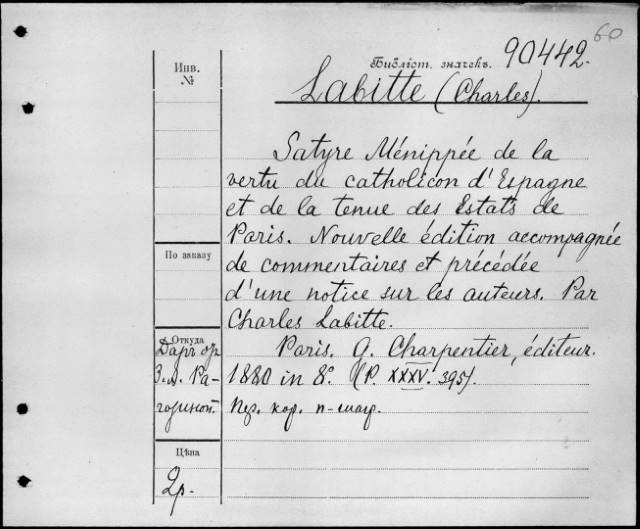 60
Библіот. значекъ. 90442.
Инв.
№
Labitte (Charles).
Satyre Ménippée de la
vertu du catholicon d'Espagne
et de la tenue des Estats de
Paris. Nouvelle édition accompagnée
По заказу
de commentaires et précédée
d'une notice sur les auteurs. Par
Charles Labitte.
Откуда
Paris. G. Charpentier, éditeur.
1880 in 8º. (P. XXXV. 395).
Пер. кор. п-шагр.
Цѣна
2р.